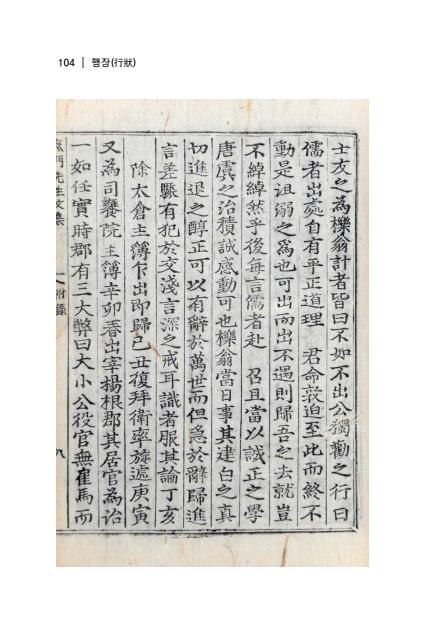 104 | 행장(行狀)
士友之為櫟翁計者皆曰不如不出公獨勸之行曰
儒者出處自有平正道理 君命敦迫至此而終不
動是沮溺之爲也可出而出不遇則歸吾之去就豈
不綽綽然乎後每言儒者赴 召且當以誠正之學
唐虞之治積誠感動可也櫟翁當日事其建白之真
切進退之醇正可以有辭於萬世而但急於辭歸進
言差驟有犯於交淺言深之戒耳識者服其論丁亥
除太倉主簿乍出即歸己丑復拜衛率旋遞庚寅
又為司饔院主簿辛卯春出宰楊根郡其居官為治
一如任實時郡有三大弊曰大小公役官無雇馬而
門先生文集 附錄 九